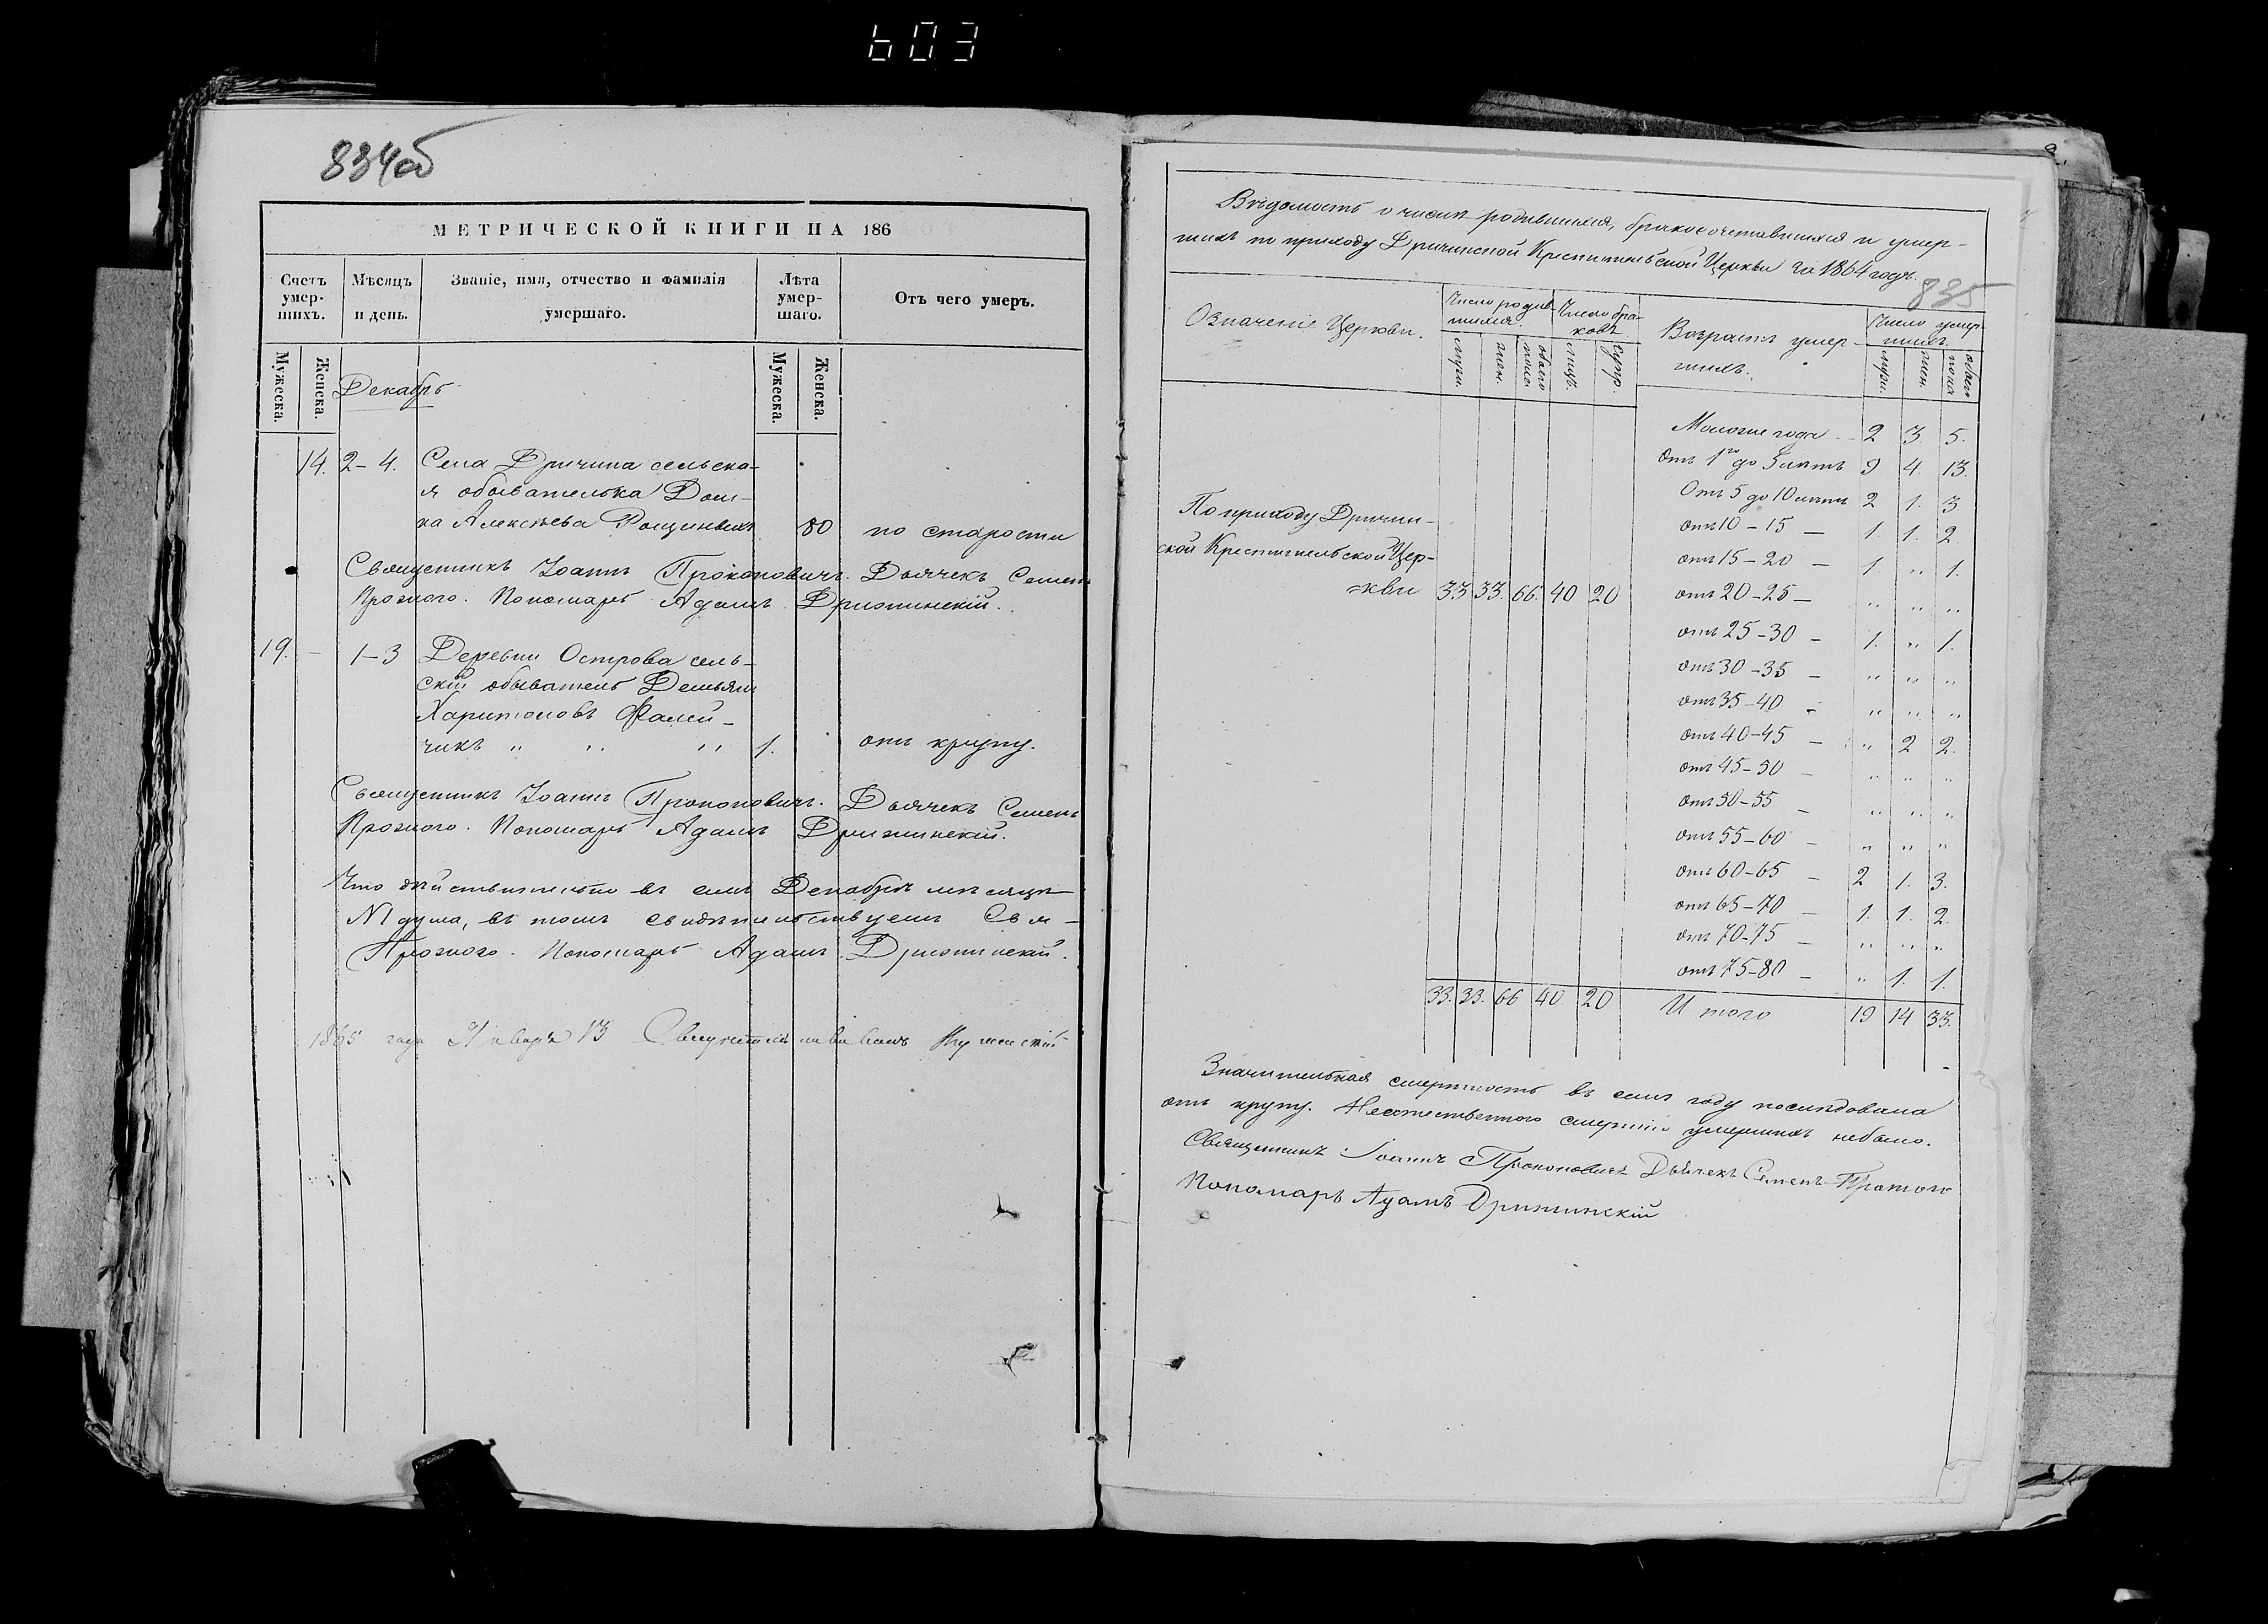 603
834об
МЕТРИЧЕСКОЙ КНИГИ НА 186
Счетъ умер-шихъ.
Мѣсяцъ и день.
Званіе, имя, отчество и фамилія умершаго.
Лѣта умер-шаго.
Отъ чего умеръ.
Мужеска.
Женска.
Мужеска.
Женска.
Декабрь
14. 2-4. Села Дричина сельска-
я обывателька Дом-
на Алексѣева 80 по старости
Священникъ Іоаннъ Прокоповичъ. Дьячекъ Семенъ
Пономарь Адамъ
19. - 1-3 Деревни Острова сель-
скій обыватель Демьян
Харитоновъ Фалей-
чикъ " " " 1. отъ крупу.
Священникъ Іоаннъ Прокоповичъ. Дьячекъ Семенъ
Пономарь Адамъ
Что дѣйствительно въ семъ Декабрѣ мѣсяцѣ
въ томъ свидѣтельствуемъ
Пономарь Адамъ
1865 года Января 13
Вѣдомость о числѣ родившихся, бракосочетавшихся и умер-
шихъ по приходу Дричинской Крестительской Церкви за 1864 годъ.
835
Означеніе Церкви.
Число родив-шихся.
Число бра-ковъ
Возрастъ умер-шихъ.
Число умер-шихъ.
муж.
жен.
обоего пола
лицъ.
супр.
муж.
жен.
обоего пола
Моложе года - 2 3. 5.
Отъ 1го до 5 лѣтъ 9 4. 13.
Отъ 5 до 10 лѣтъ 2 1. 3
отъ 10-15 - 1. 1. 2.
отъ 15-20 - 1. " 1.
По приходу Дричин-
ской Крестительской Цер-
=кви 33 33. 66. 40 20
отъ 20-25 - " " "
отъ 25-30 - 1. " 1.
отъ 30-35 - " " "
отъ 35-40 - " " "
отъ 40-45 - " 2 2.
отъ 45-50 - " " "
отъ 50-55 - " " "
отъ 55-60 - " " "
отъ 60-65 - 2 1. 3.
отъ 65-70 - 1. 1. 2.
отъ 70-75 - " " "
отъ 75-80 - " 1. 1.
33. 33. 66 40. 20 Итого 19 14 33.
Значительная смертность въ семъ году послѣдовала
отъ крупу. Неестественною смертію умершихъ небыло.
Священникъ Іоаннъ Прокоповичъ Дьячекъ Семенъ
Пономарь Адамъ